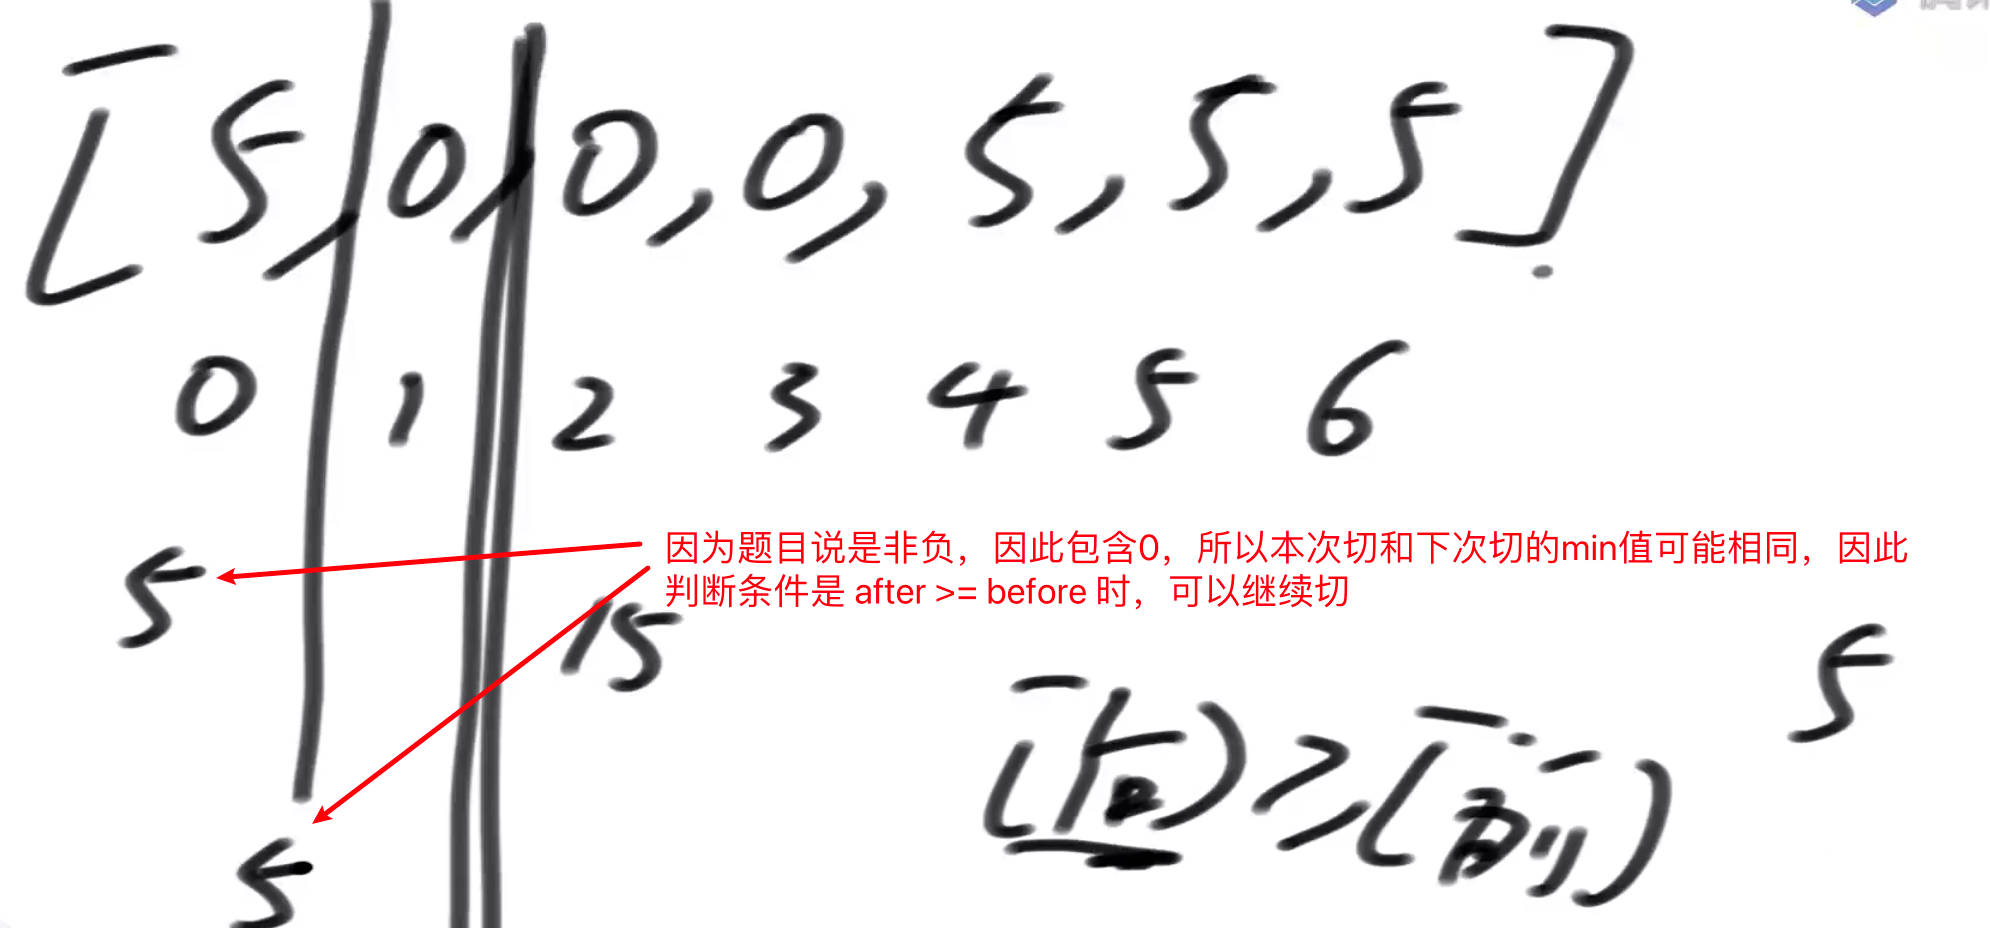 [5,0,0,0,5,5,5]
0 1 2 3 4 5 6
因为题目说是非负，因此包含0，所以本次切和下次切的min值可能相同，因此
判断条件是 after >= before 时，可以继续切
5 15 5
(后)≥(前)
5